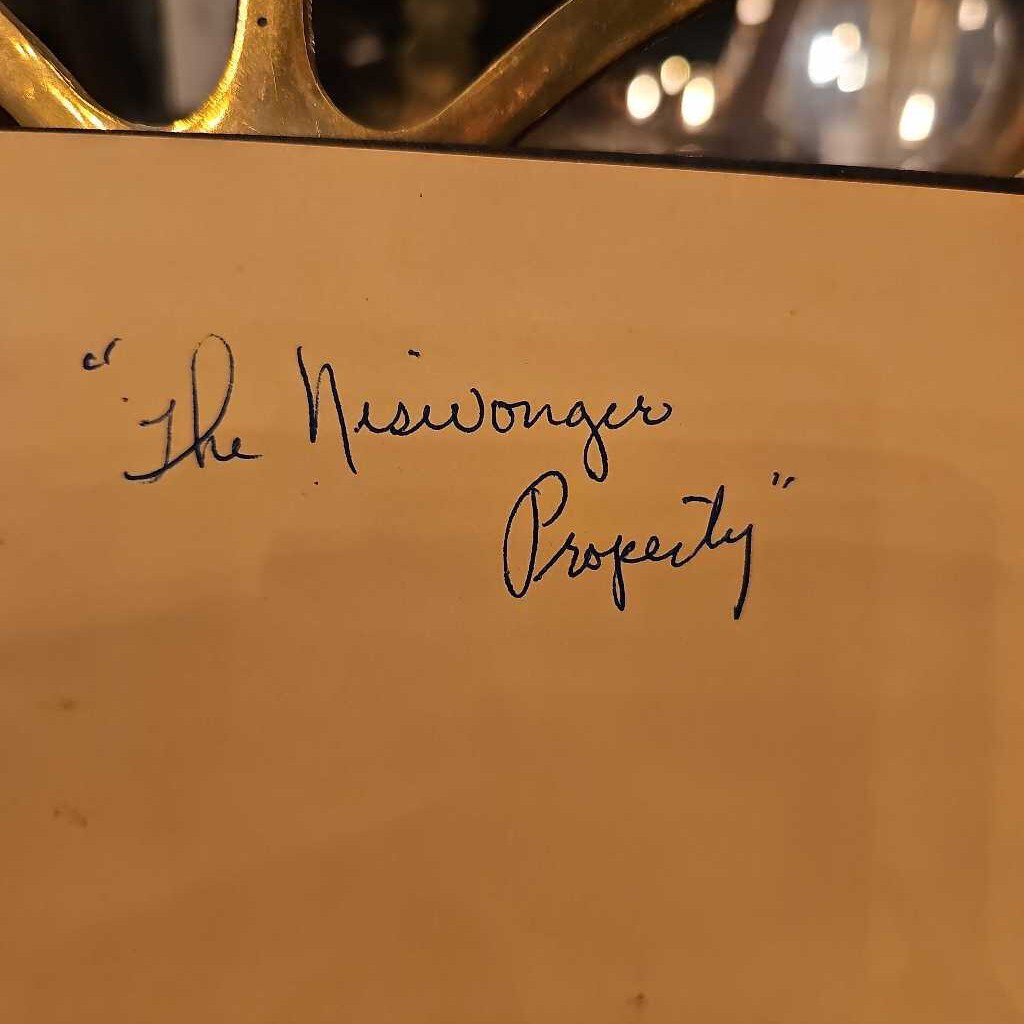 "The Niswonger
Property"